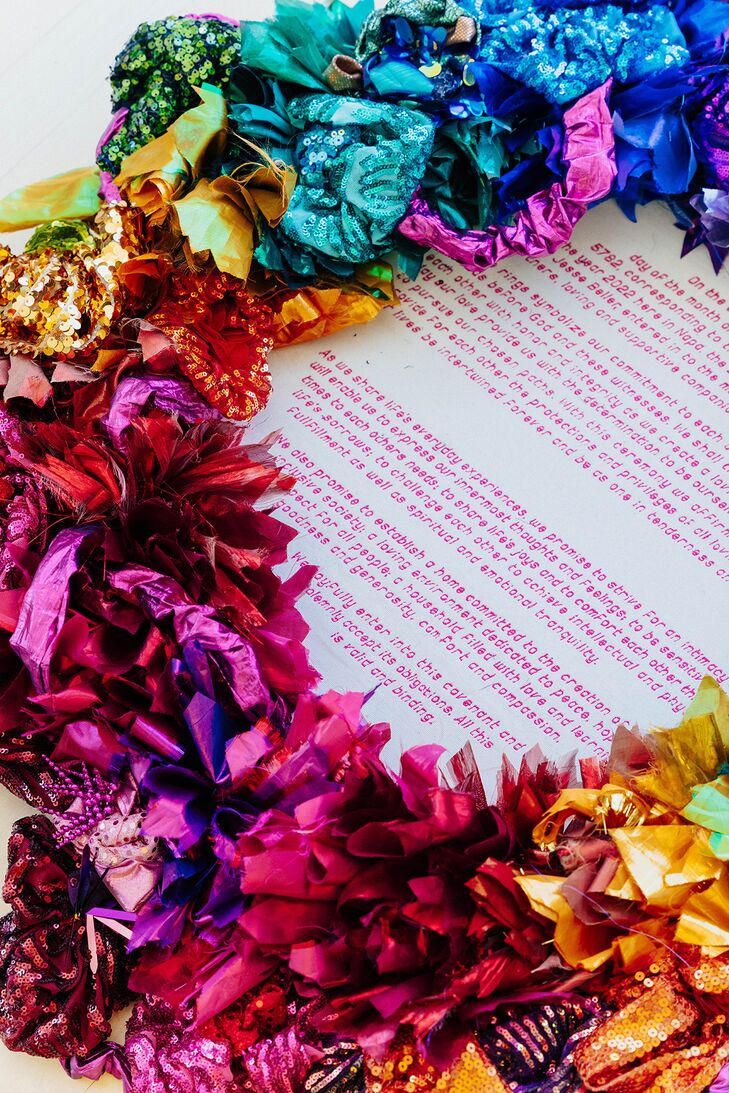 On the
day of the month o
5782, corresponding to
the year 2022 here in Napa
Jesse Beller, entered in to the
loving and supportive
rings symbolize our commitment to each
before God and these witnesses. We shall
each other with honor and integrity as we create a lov
our love provide us with the determination to be ourselv
pursue our chosen paths. With this ceremony we affirm
for each other the protections and privileges of all lov
lives be intertwined forever and be as one in tenderness
As we share life's everyday experiences, we promise to strive for an intimac
will enable us to express our innermost thoughts and feelings; to be sensitiv
times to each others needs, to share life's joys and to comfort each other
life's sorrows; to challenge each other to achieve intellectual and phy
fulfillment as well as spiritual and emotional tranquility.
We also promise to establish a home committed to the creation o
clusive society; a loving environment dedicated to peace, ho
pect for all People; a household filled with love and learni
goodness and generosity, comfort and compassion.
joyfully enter into this covenant and
olemnly accept its obligations. All this
is valid and binding.